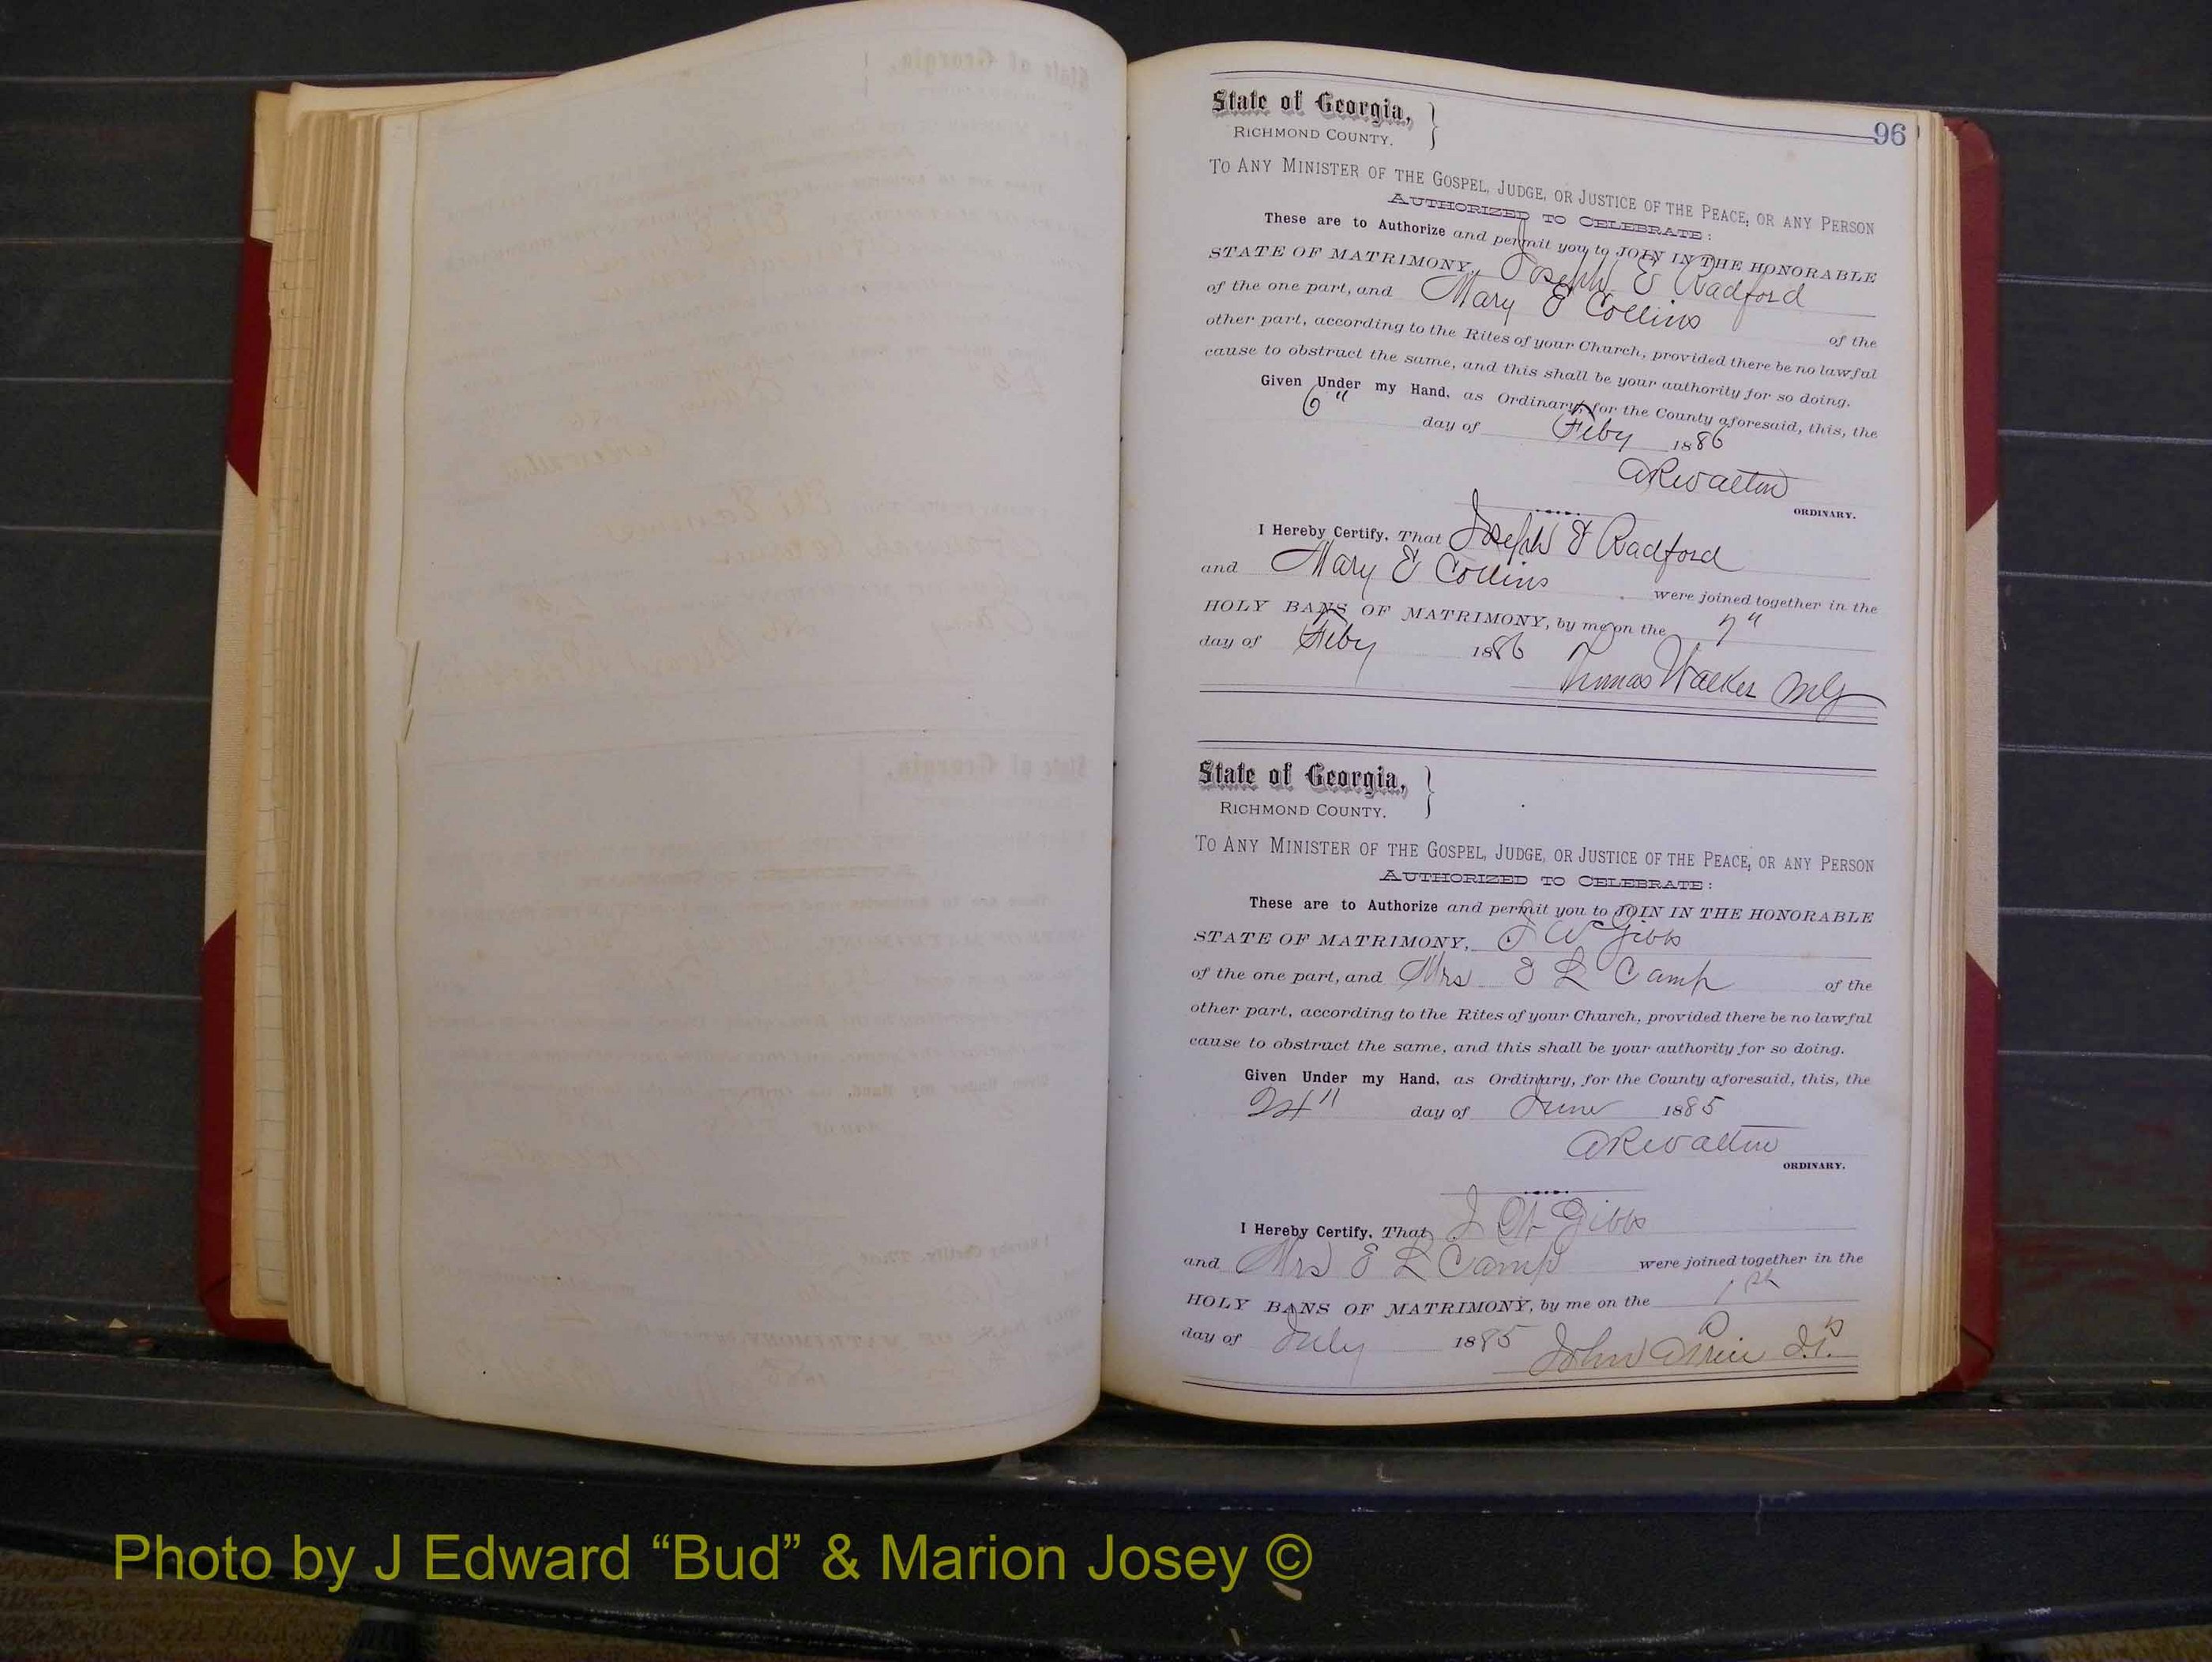 96
State of Georgia,
RICHMOND COUNTY.
TO ANY MINISTER OF THE GOSPEL, JUDGE, OR JUSTICE OF THE PEACE, OR ANY PERSON
AUTHORIZED TO CELEBRATE:
These are to Authorize and permit you to JOIN IN THE HONORABLE
STATE OF MATRIMONY, Joseph E Radford
of the one part, and Mary E Collins of the
other part, according to the Rites of your Church, provided there be no lawful
cause to obstruct the same, and this shall be your authority for so doing.
Given Under my Hand, as Ordinary, for the County aforesaid, this, the
6" day of Feby 1886
ORDINARY.
I Hereby Certify, That Joseph E Radford
and Mary E Collins were joined together in the
HOLY BANS OF MATRIMONY, by me on the 7"
day of Feby 1886 Thomas Walker MG
State of Georgia,
RICHMOND COUNTY.
TO ANY MINISTER OF THE GOSPEL, JUDGE, OR JUSTICE OF THE PEACE, OR ANY PERSON
AUTHORIZED TO CELEBRATE:
These are to Authorize and permit you to JOIN IN THE HONORABLE
STATE OF MATRIMONY, J W Gibbs
of the one part, and Mrs E L Camp of the
other part, according to the Rites of your Church, provided there be no lawful
cause to obstruct the same, and this shall be your authority for so doing.
Given Under my Hand, as Ordinary, for the County aforesaid, this, the
24" day of June 1885
ORDINARY.
I Hereby Certify, That J W Gibbs
and Mrs E L Camp were joined together in the
HOLY BANS OF MATRIMONY, by me on the
day of July 1885 John
Photo by J Edward “Bud” & Marion Josey ©